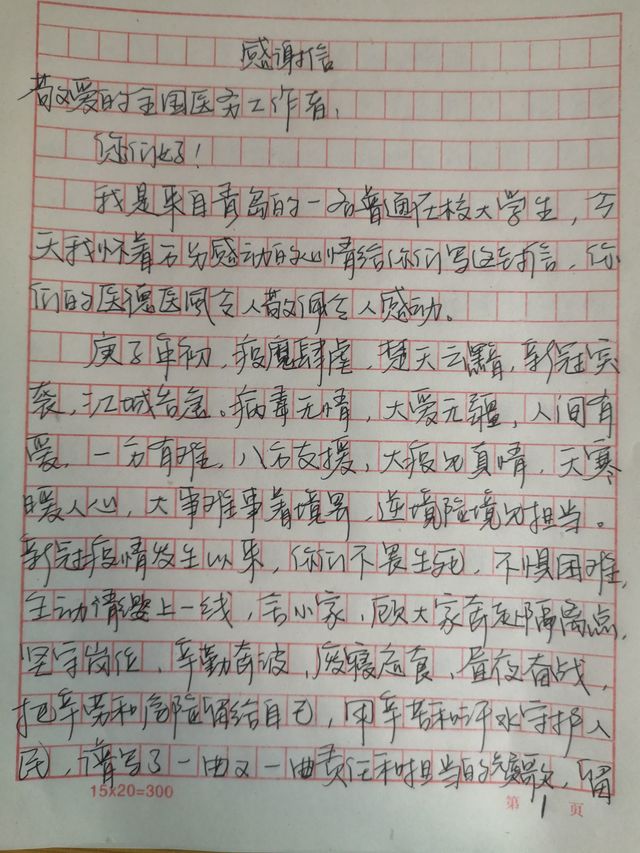 感谢信
敬爱的全国医务工作者，
你们好！
我是来自青岛的一名普通在校大学生，今
天我怀着万分感动的心情给你们写这封信，你
们的医德医风令人敬佩令人感动。
庚子年初，疫魔肆虐，楚天云黯，新冠突
袭，江城告急。病毒无情，大爱无疆，人间有
爱，一方有难，八方支援，大疫见真情，天寒
暖人心，大事难事着境界，逆境险境见担当。
新冠疫情发生以来，你们不畏生死，不惧困难，
主动请婴上一线，舍小家，顾大家奔赴隔离点，
坚守岗位，辛勤奔波，废寝忘食，昼夜奋战，
把辛劳和危险留给自己，用辛苦和汗水守护人
民，谱写了一曲又一曲责任和担当的赞歌，留
15×20=300
第1页